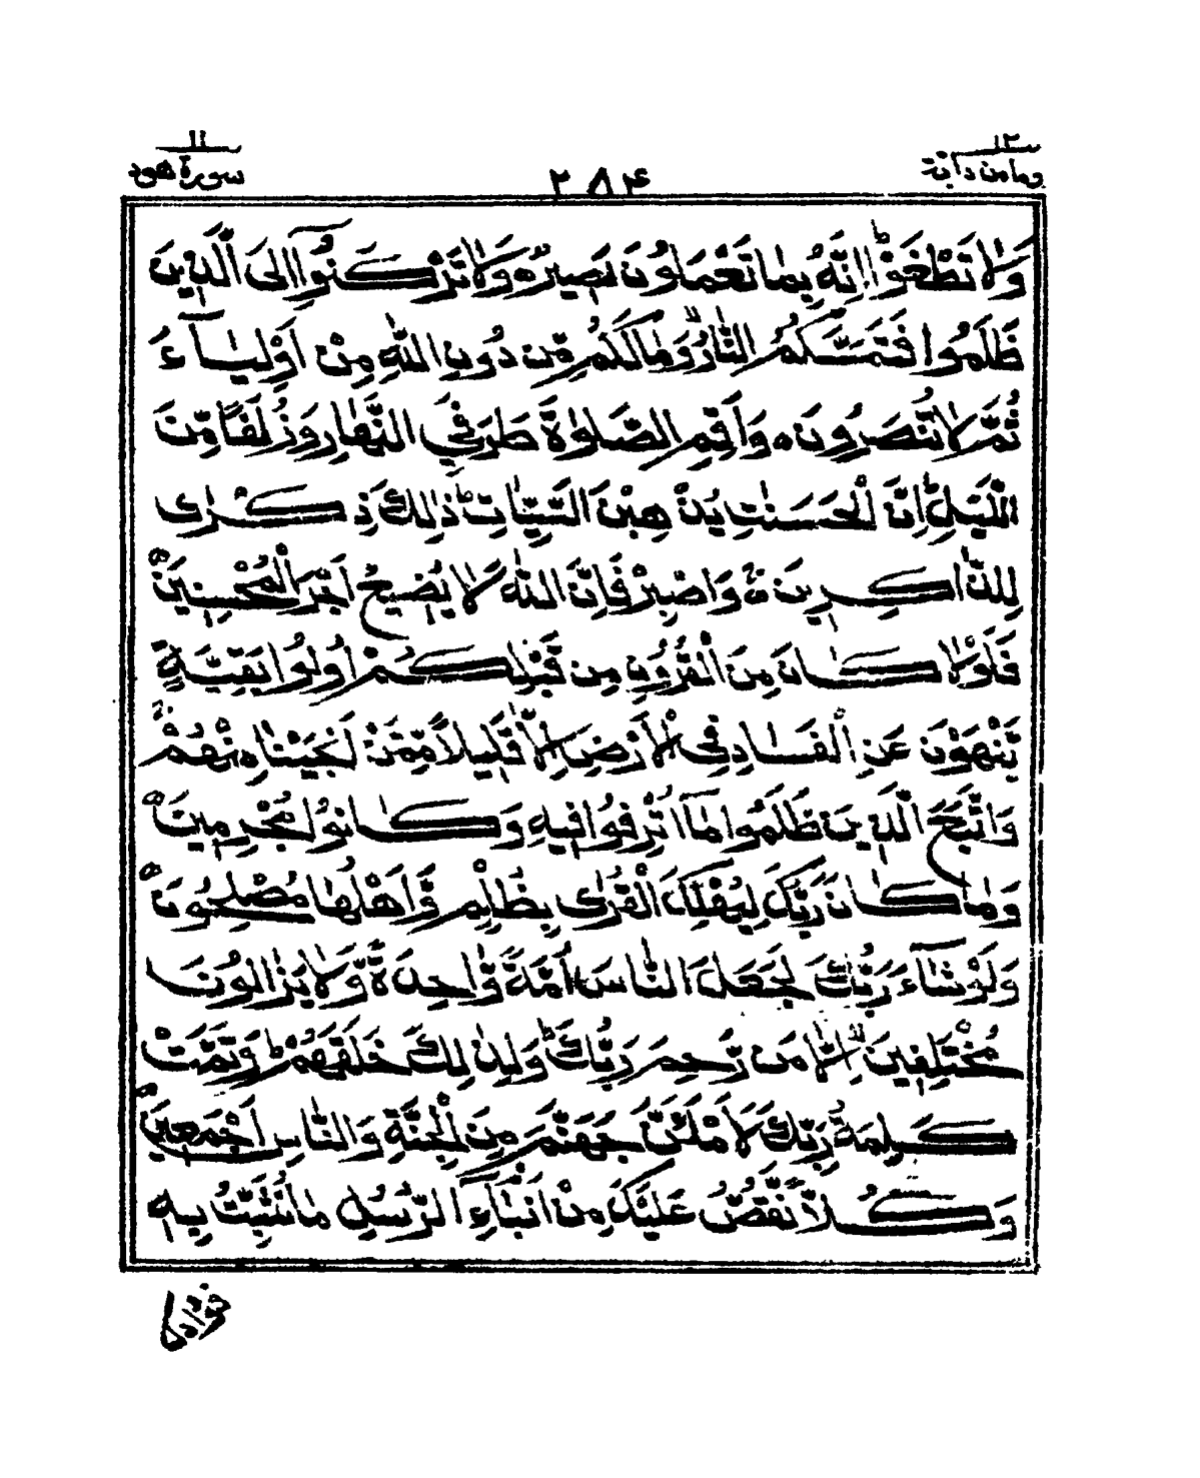 ۱۲
وما من دآبة
۲۸۴
۱۱
سورة هود
وَلَا تَطْغَوْا ؕ اِنَّهٗ بِمَا تَعْمَلُوْنَ بَصِيْرٌ ۝ وَلَا تَرْكَنُوْٓا اِلَى الَّذِيْنَ
ظَلَمُوْا فَتَمَسَّكُمُ النَّارُ ۙ وَمَا لَكُمْ مِّنْ دُوْنِ اللّٰهِ مِنْ اَوْلِيَآءَ
ثُمَّ لَا تُنْصَرُوْنَ ۝ وَاَقِمِ الصَّلٰوةَ طَرَفَيِ النَّهَارِ وَزُلَفًا مِّنَ
الَّيْلِ ؕ اِنَّ الْحَسَنٰتِ يُذْهِبْنَ السَّيِّاٰتِ ؕ ذٰلِكَ ذِكْرٰى
لِلذّٰاكِرِيْنَ ۝ وَاصْبِرْ فَاِنَّ اللّٰهَ لَا يُضِيْعُ اَجْرَ الْمُحْسِنِيْنَ ۝
فَلَوْلَا كَانَ مِنَ الْقُرُوْنِ مِنْ قَبْلِكُمْ اُولُوْا بَقِيَّةٍ
يَّنْهَوْنَ عَنِ الْفَسَادِ فِى الْاَرْضِ اِلَّا قَلِيْلًا مِّمَّنْ اَنْجَيْنَا مِنْهُمْ ۚ
وَاتَّبَعَ الَّذِيْنَ ظَلَمُوْا مَآ اُتْرِفُوْا فِيْهِ وَكَانُوْا مُجْرِمِيْنَ ۝
وَمَا كَانَ رَبُّكَ لِيُهْلِكَ الْقُرٰى بِظُلْمٍ وَّاَهْلُهَا مُصْلِحُوْنَ ۝
وَلَوْ شَآءَ رَبُّكَ لَجَعَلَ النَّاسَ اُمَّةً وَّاحِدَةً وَّلَا يَزَالُوْنَ
مُخْتَلِفِيْنَ ۙ اِلَّا مَنْ رَّحِمَ رَبُّكَ ؕ وَلِذٰلِكَ خَلَقَهُمْ ؕ وَتَمَّتْ
كَلِمَةُ رَبِّكَ لَاَمْلَئَنَّ جَهَنَّمَ مِنَ الْجِنَّةِ وَالنَّاسِ اَجْمَعِيْنَ ۝
وَكُلًّا نَّقُصُّ عَلَيْكَ مِنْ اَنْۢبَآءِ الرُّسُلِ مَا نُثَبِّتُ بِهٖ
فؤادك